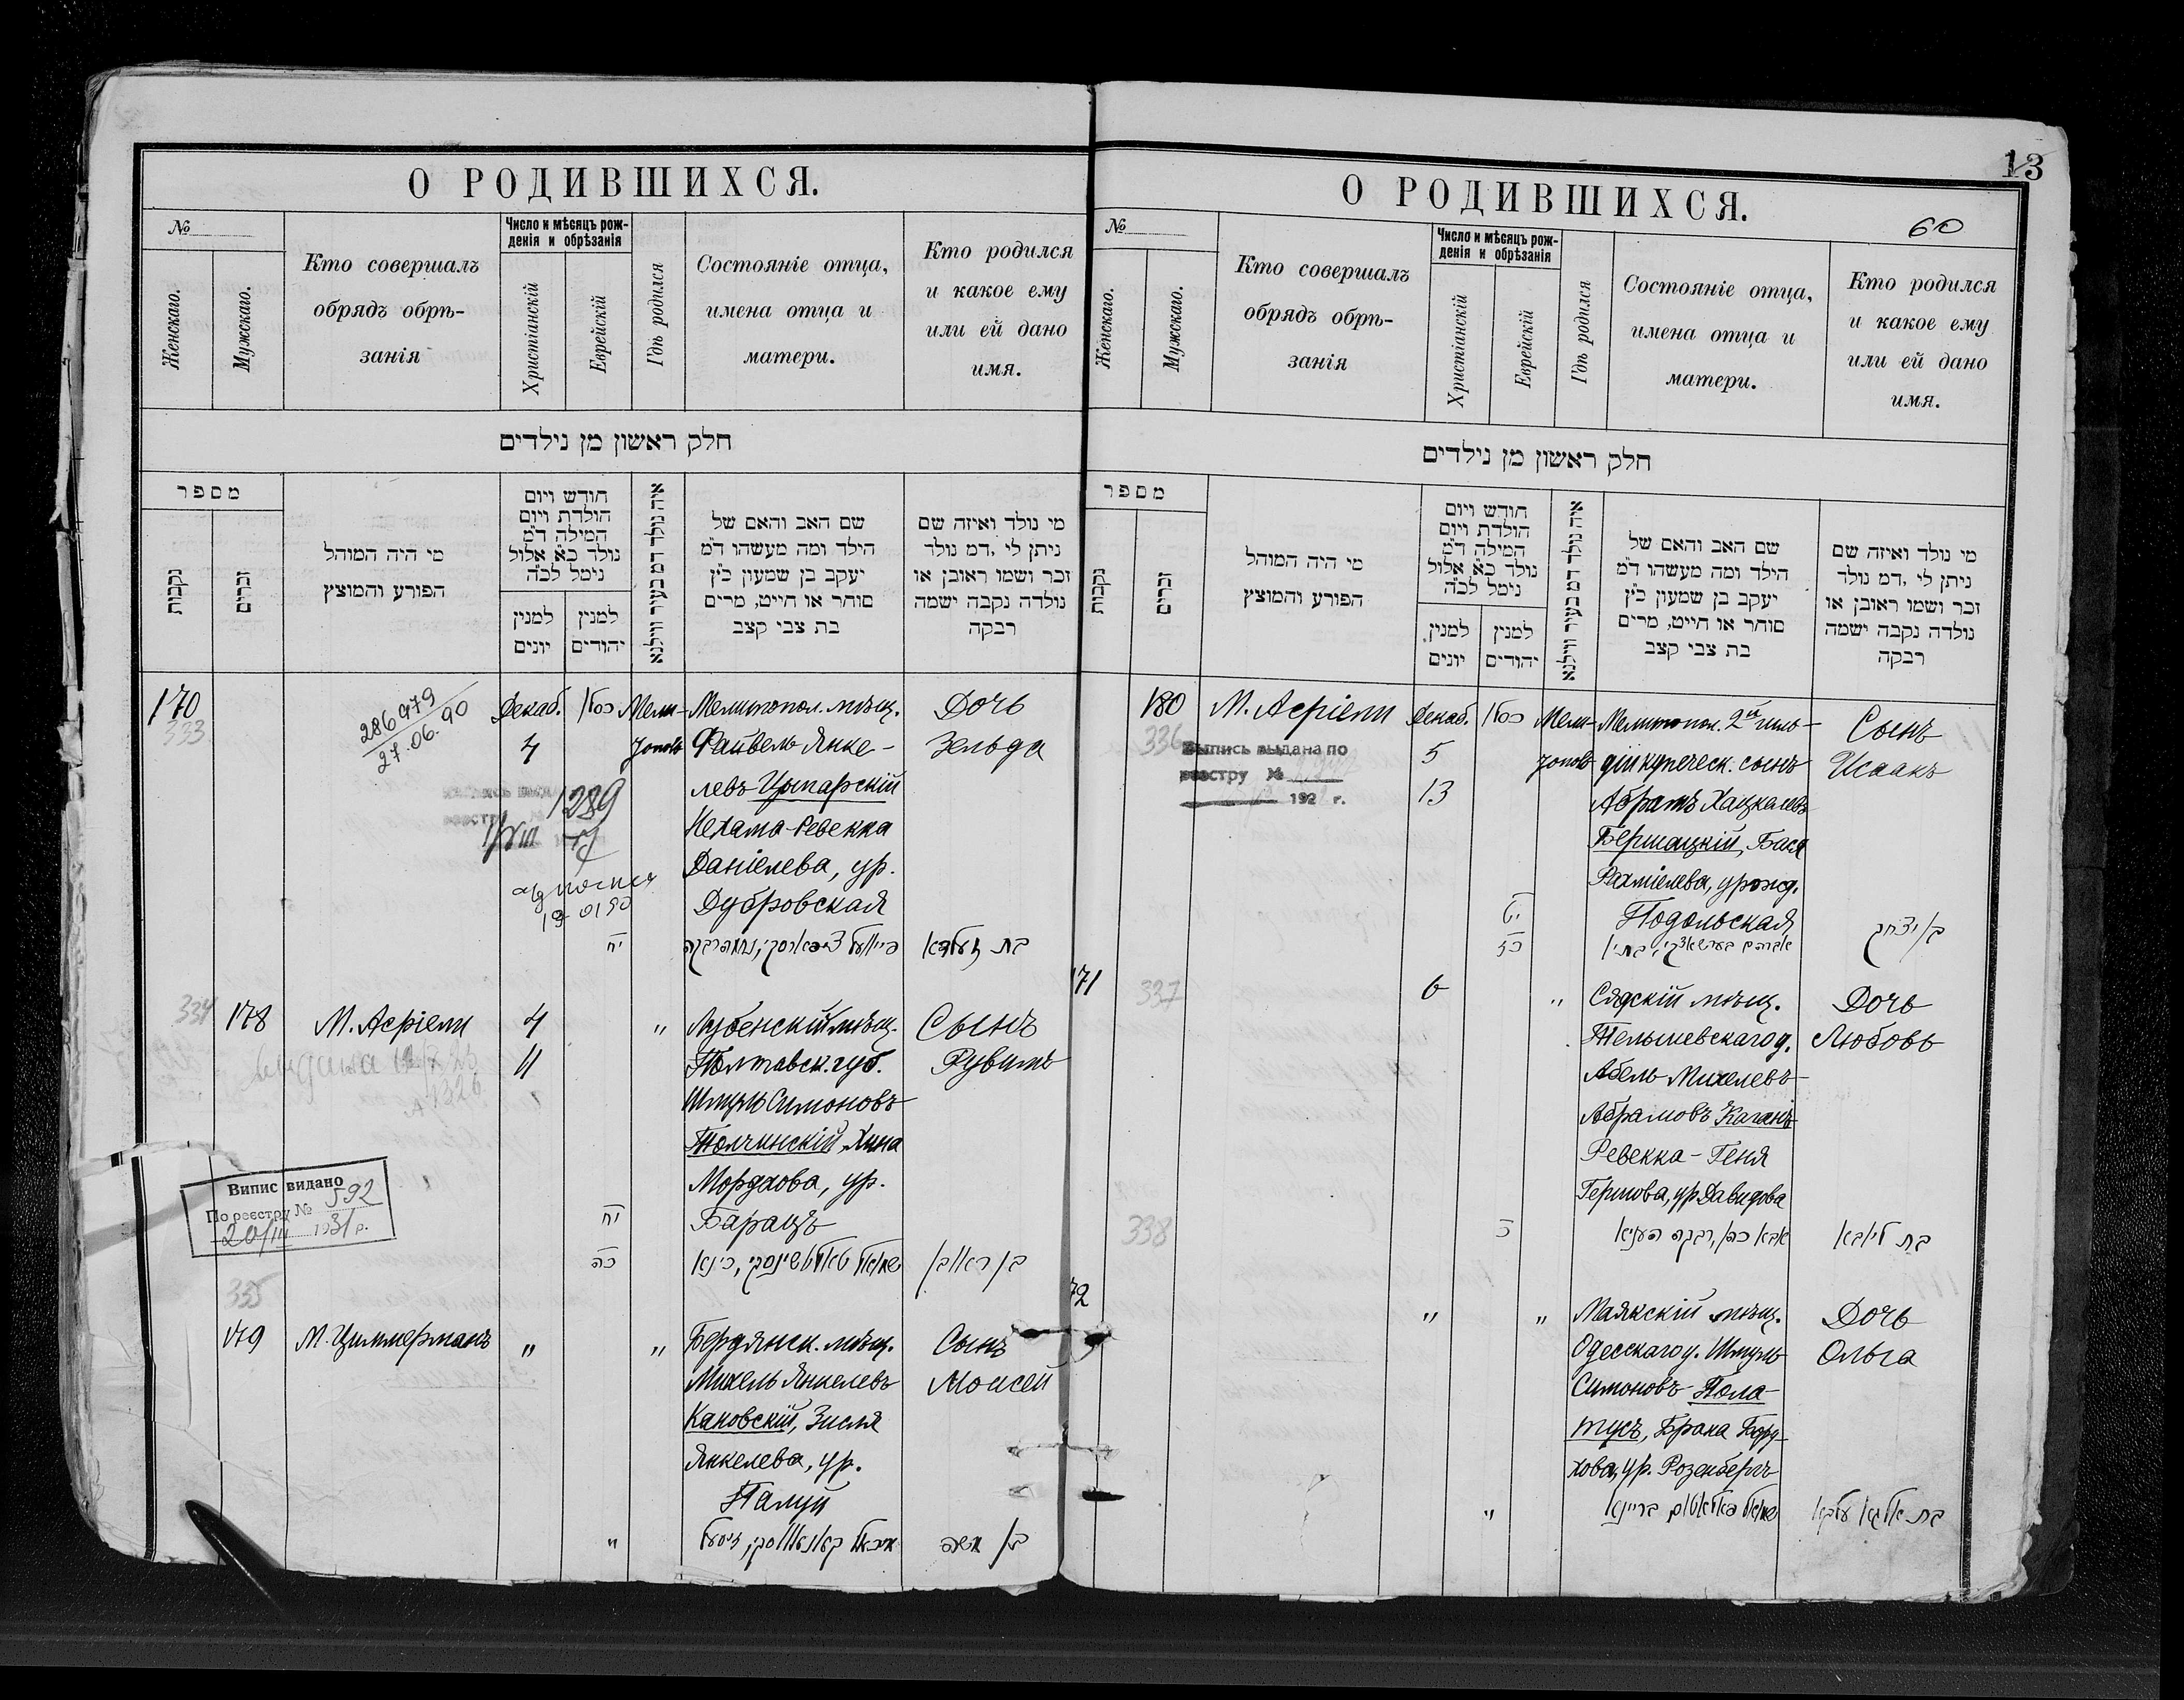 О РОДИВШИХСЯ.
№
Женскаго.
Мужскаго.
Кто совершалъ
обрядъ обрѣ-
занія
Число и мѣсяцъ рож-
денія и обрѣзанія
Христіанскій
Еврейскій
Гдѣ родился
Состояніе отца,
имена отца и
матери.
Кто родился
и какое ему
или ей дано
имя.
חלק ראשון מן נילדים
מספר
נקבות
זכרים
מי היה המוהל
הפורע והמוצץ
חודש ויום
הולדת ויום
המילה ד״מ
נולד כ״א אלול
נימל לכ״ה
למנין
יונים
למנין
יהודים
איה נולד דמ בעיר ווילנא
שם האב והאם של
הילד ומה מעשהו ד״מ
יעקב בן שמעון כ״ץ
סוחר או חייט, מרים
בת צבי קצב
מי נולד ואיזה שם
ניתן לי ,דמ נולד
זכר ושמו ראובן או
נולדה נקבה ישמה
רבקה
170
333
286979
27.06.90
1289
Декаб.
4
כסלו
Мели-
тополь
Мелитопол. мѣщ.
Файвель Янке-
левъ Цыпарскій
Нехама-Ревекка
Даніелева, ур.
Дубровская
Дочь
Зельда
יח
בת זעלדא
334
178
М. Асріели
4
11
"
Лубенскій мѣщ.
Полтавск. губ.
Шмуль Симоновъ
Толчинскій, Хина
Мордхова, ур.
Барацъ
Сынъ
Рувимъ
יח
כה
בן ראובן
Випис видано
По реєстру № 592
20/III 1931 р.
335
179
М. Циммерманъ
"
"
Бердянск. мѣщ.
Михель Янкелевъ
Кановскій, Зисля
Янкелева, ур.
Палуй
Сынъ
Моисей
"
בן משה
13
О РОДИВШИХСЯ.
60
№
Женскаго.
Мужскаго.
Кто совершалъ
обрядъ обрѣ-
занія
Число и мѣсяцъ рож-
денія и обрѣзанія
Христіанскій
Еврейскій
Гдѣ родился
Состояніе отца,
имена отца и
матери.
Кто родился
и какое ему
или ей дано
имя.
חלק ראשון מן נילדים
מספר
נקבות
זכרים
מי היה המוהל
הפורע והמוצץ
חודש ויום
הולדת ויום
המילה ד״מ
נולד כ״א אלול
נימל לכ״ה
למנין
יונים
למנין
יהודים
איה נולד דמ בעיר ווילנא
שם האב והאם של
הילד ומה מעשהו ד״מ
יעקב בן שמעון כ״ץ
סוחר או חייט, מרים
בת צבי קצב
מי נולד ואיזה שם
ניתן לי ,דמ נולד
זכר ושמו ראובן או
נולדה נקבה ישמה
רבקה
180
336
М. Асріели
Выпись выдана по
реестру №
192 г.
Декаб.
5
13
כסלו
Мели-
тополь
Мелитопол. 2й гиль-
дій купеческ. сынъ
Абрамъ Хацкелевъ
Бершацкій, Бася
Рахміелева, урожд.
Подольская
Сынъ
Исаакъ
יט
כז
בן יצחק
171
337
6
"
Сядскій мѣщ.
Тельшевскаго у.
Абель Михелевъ-
Абрамовъ Каганъ
Ревекка-Геня
Гершова, ур. Давидова
Дочь
Любовь
כ
בת ליובא
338
172
"
"
Маякскій мѣщ.
Одесскаго у. Шмуль
Симоновъ Пола-
тусъ, Браха Борд-
хова, ур. Розенбергъ
Дочь
Ольга
"